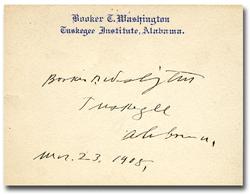 Booker T. Washington
Tuskegee Institute, Alabama.
Booker T. Washington
Tuskegee
Alabama,
Mar. 23. 1905,